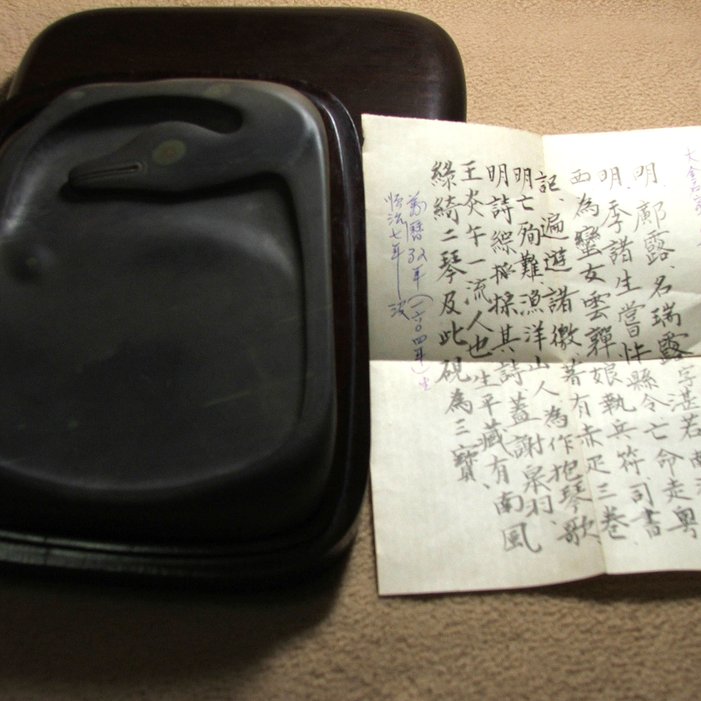 明、鄺露、名瑞露字湛若南海
明、季諸生嘗忤縣令亡命走粵
西為蠻女雲嚲娘執兵符司書
記、遍遊諸徼著有赤疋三卷
明亡殉難漁洋山人為作抱琴歌
明詩綜採其詩、蓋謝泉羽、
王炎午一流人也、生平藏有南風
綠綺二琴及此硯為三寶、
萬曆32年(一六〇四年)生
順治七年 歿